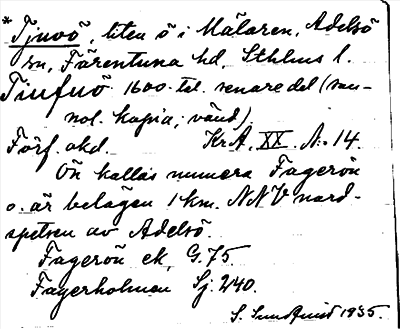 *Tjuvö, liten ö i Mälaren, Adelsö
sn, Färentuna hd, Sthlms l.
Tiufuö 1600-tal. senare del (san-
nol. kopia; vänd).
Förf. okd. Kr.A. XX. A: 14.
Ön kallas numera Fagerön
o. är belägen 1 km. NNV nord-
spetsen av Adelsö.
Fagerön ek, G. 75
Fagerholmen Sj. 240.
S. Sundquist 1935.